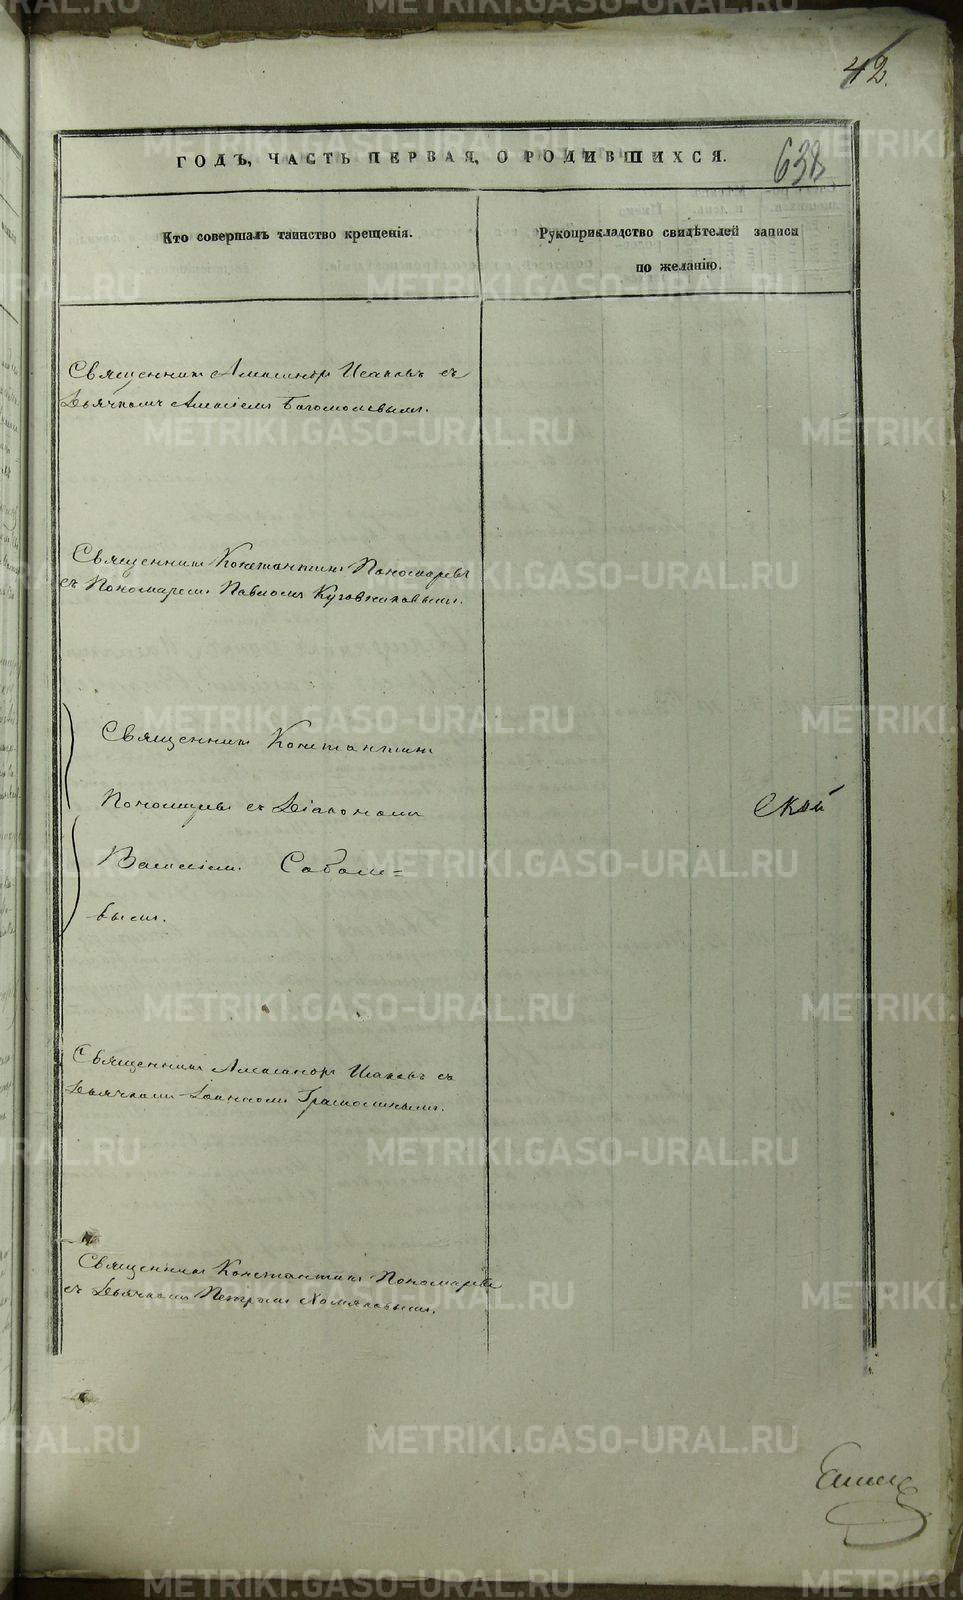 42.
638
ГОДЪ, ЧАСТЬ ПЕРВАЯ, О РОДИВШИХСЯ.
Кто совершалъ таинство крещенія.
Рукоприкладство свидѣтелей записи
по желанію.
Священникъ Александръ Исаковъ съ
Дьячкомъ Алексіемъ Богомоловымъ.
Священникъ Константинъ Пономаревъ
съ Пономаремъ Павломъ Кузовниковымъ.
Священникъ Константинъ
Пономаревъ съ Діакономъ
Василіемъ Соболе=
вымъ.
ской
Священникъ Александръ Исаковъ съ
Дьячкомъ Іоанномъ
Священникъ Константинъ Пономаревъ
съ Дьячкомъ Петромъ Хомяковымъ.
METRIKI.GASO-URAL.RU